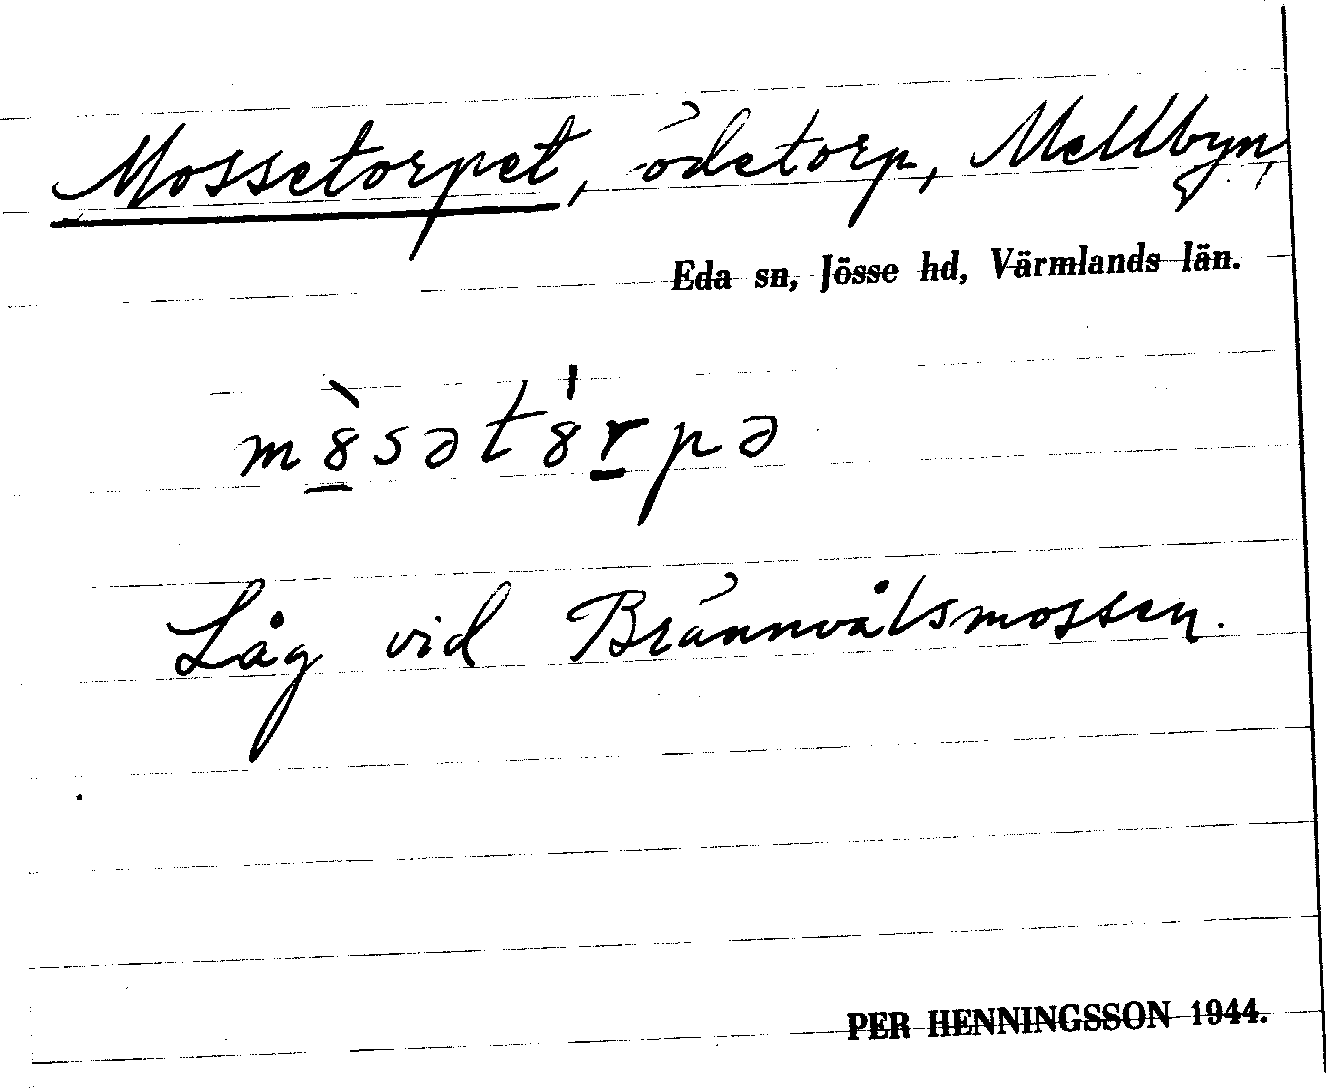 Mossetorpet, ödetorp, Mellbyn,
Eda sn, Jösse hd, Värmlands län.
m8̱̀sətˈ8ṟpə
Låg vid Brännvålsmossen.
PER HENNINGSSON 1944.